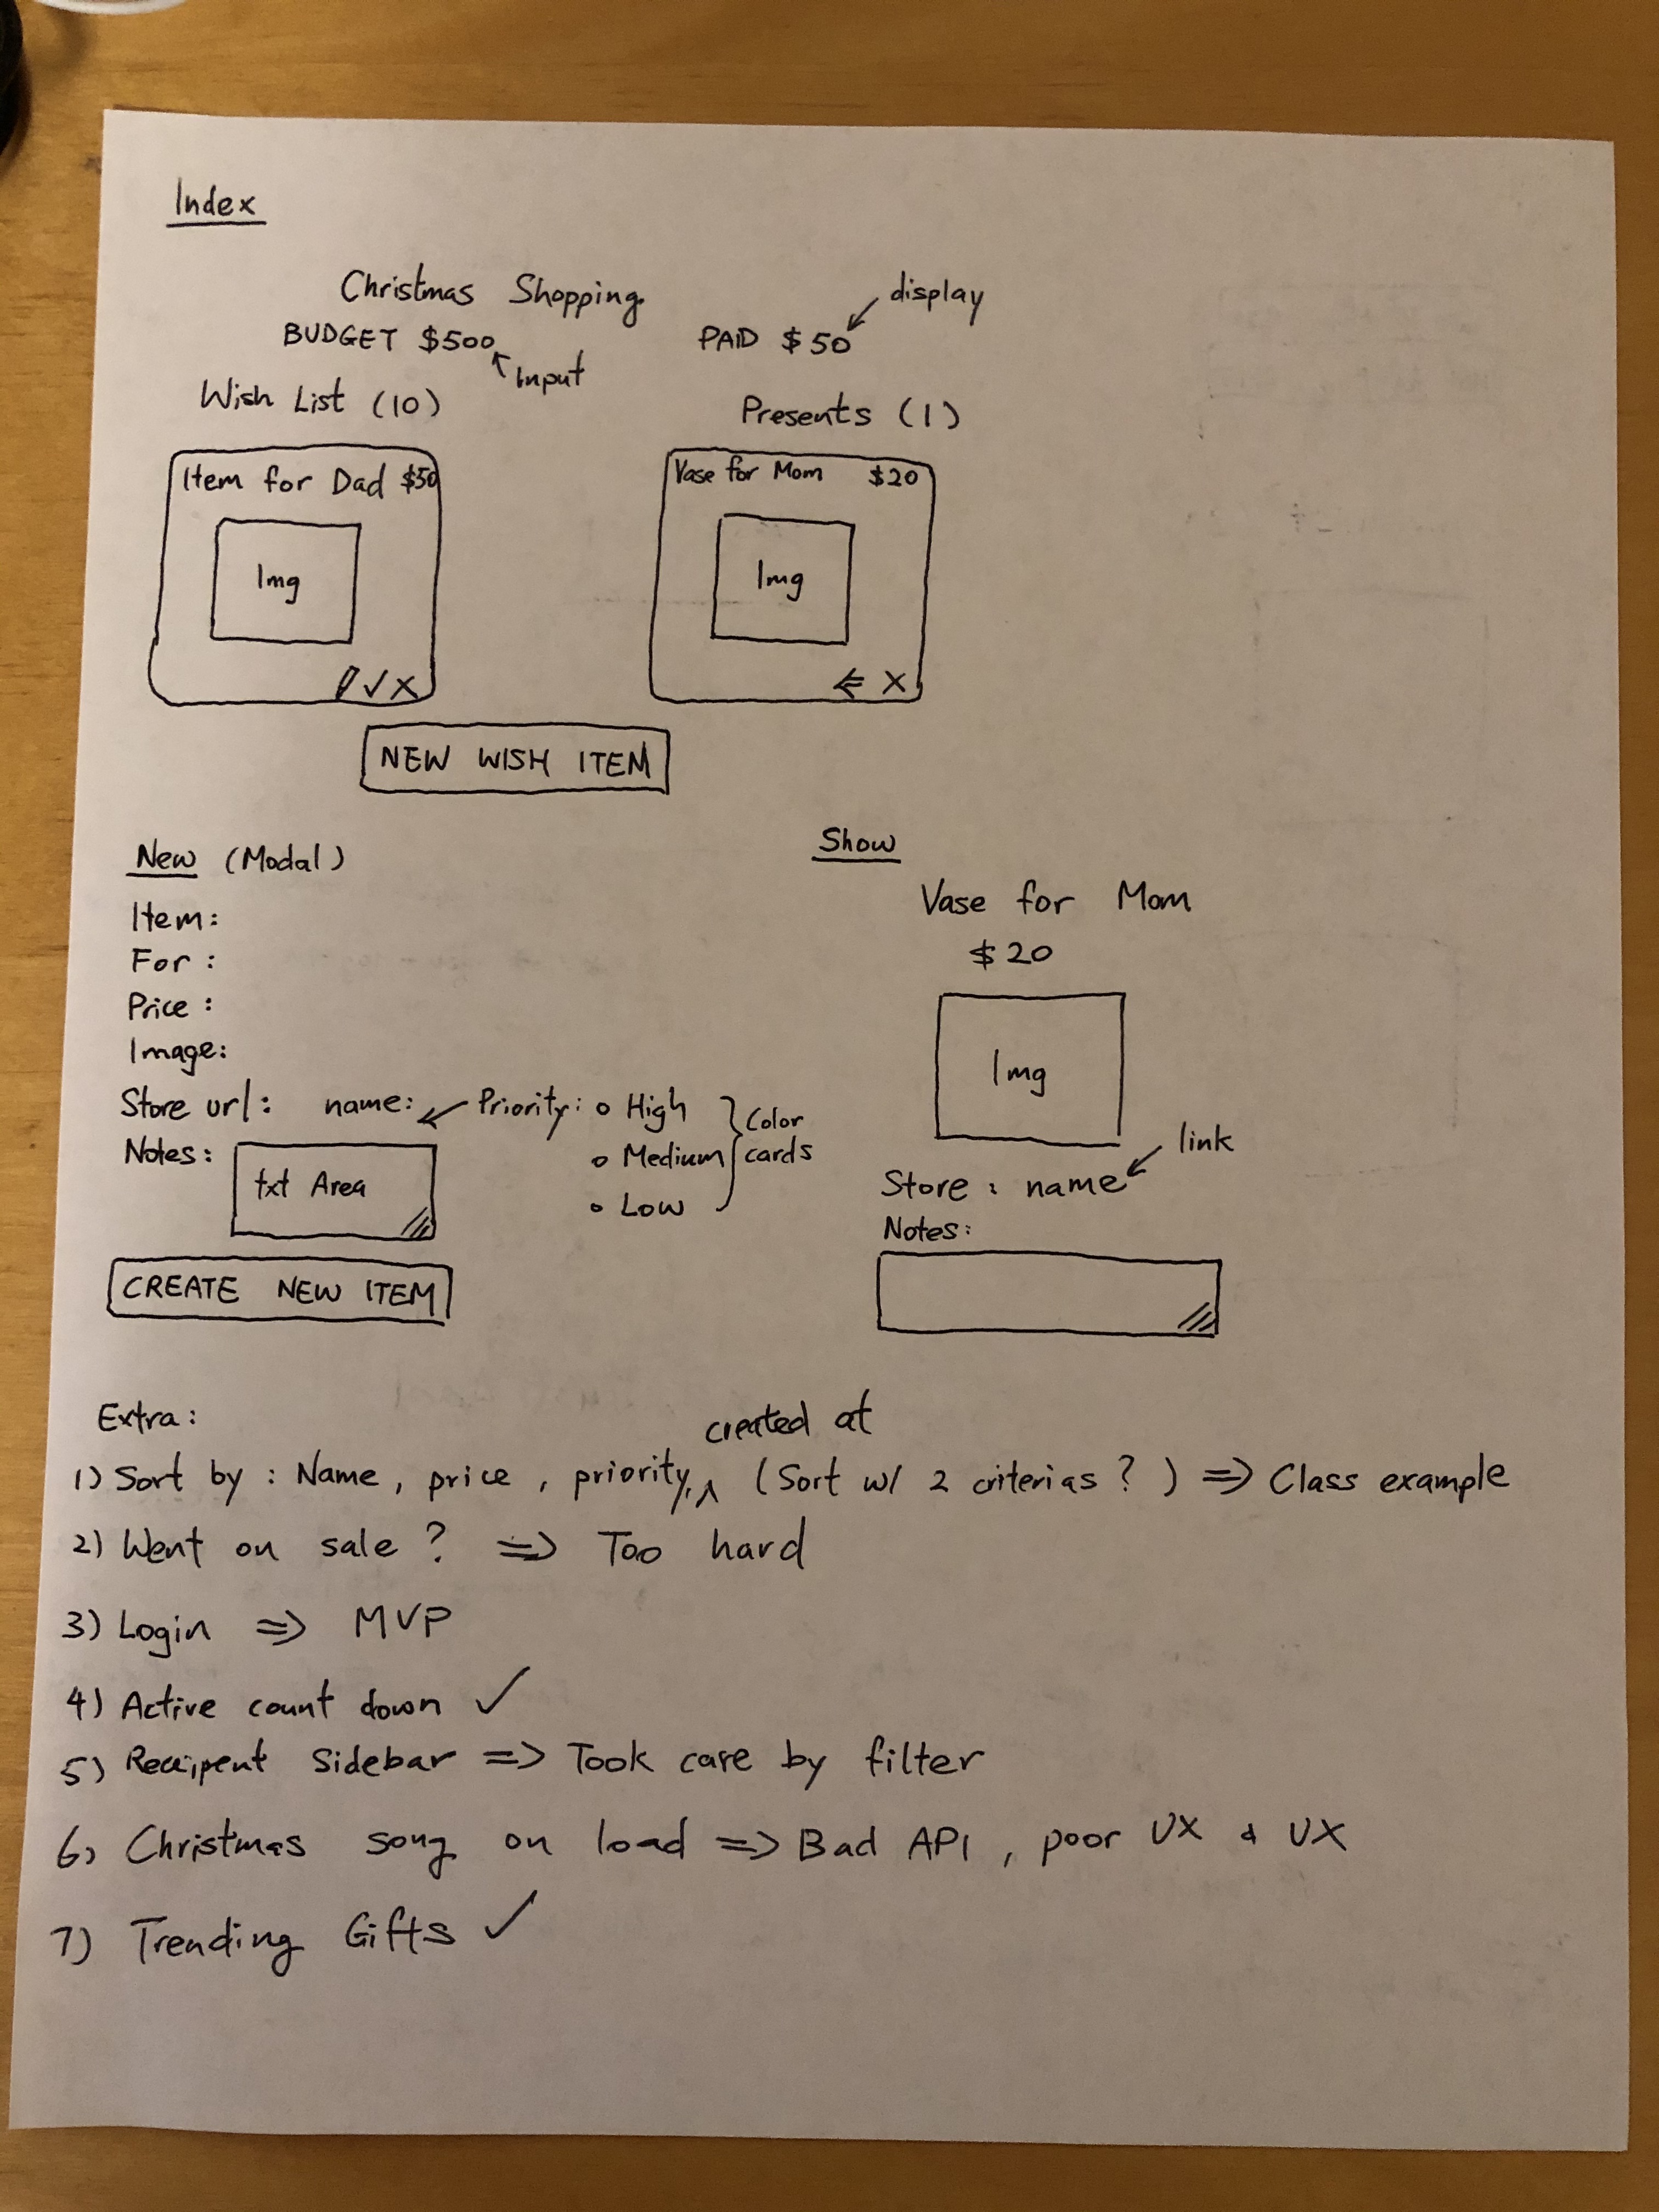 Index
Christmas Shopping
display
BUDGET $500
PAID $50
Input
Wish List (10)
Presents (1)
Item for Dad $50
Vase for Mom $20
Img
Img
✓ X
⇐ X
NEW WISH ITEM
New (Modal)
Item:
For :
Price :
Image:
Store url: name:
Priority: o High
o Medium
o Low
Color
cards
Notes:
txt Area
CREATE NEW ITEM
Show
Vase for Mom
$20
Img
link
Store : name
Notes:
Extra:
created at
1) Sort by : Name, price, priority, ^ (Sort w/ 2 criterias ?) => Class example
2) Went on sale ? => Too hard
3) Login => MVP
4) Active count down ✓
5) Receipent Sidebar => Took care by filter
6) Christmas song on load => Bad API, poor UX & UX
7) Trending Gifts ✓